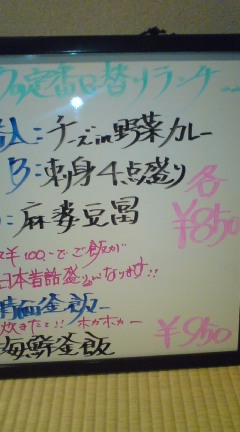 定番日替りランチ
A:チーズin野菜カレー
B:刺身4点盛り
各
:麻婆豆腐
¥850
¥100.-でご飯が
日本昔話盛りになります!!
釜飯
炊きたて!!ホカホカー
¥950
海鮮釜飯